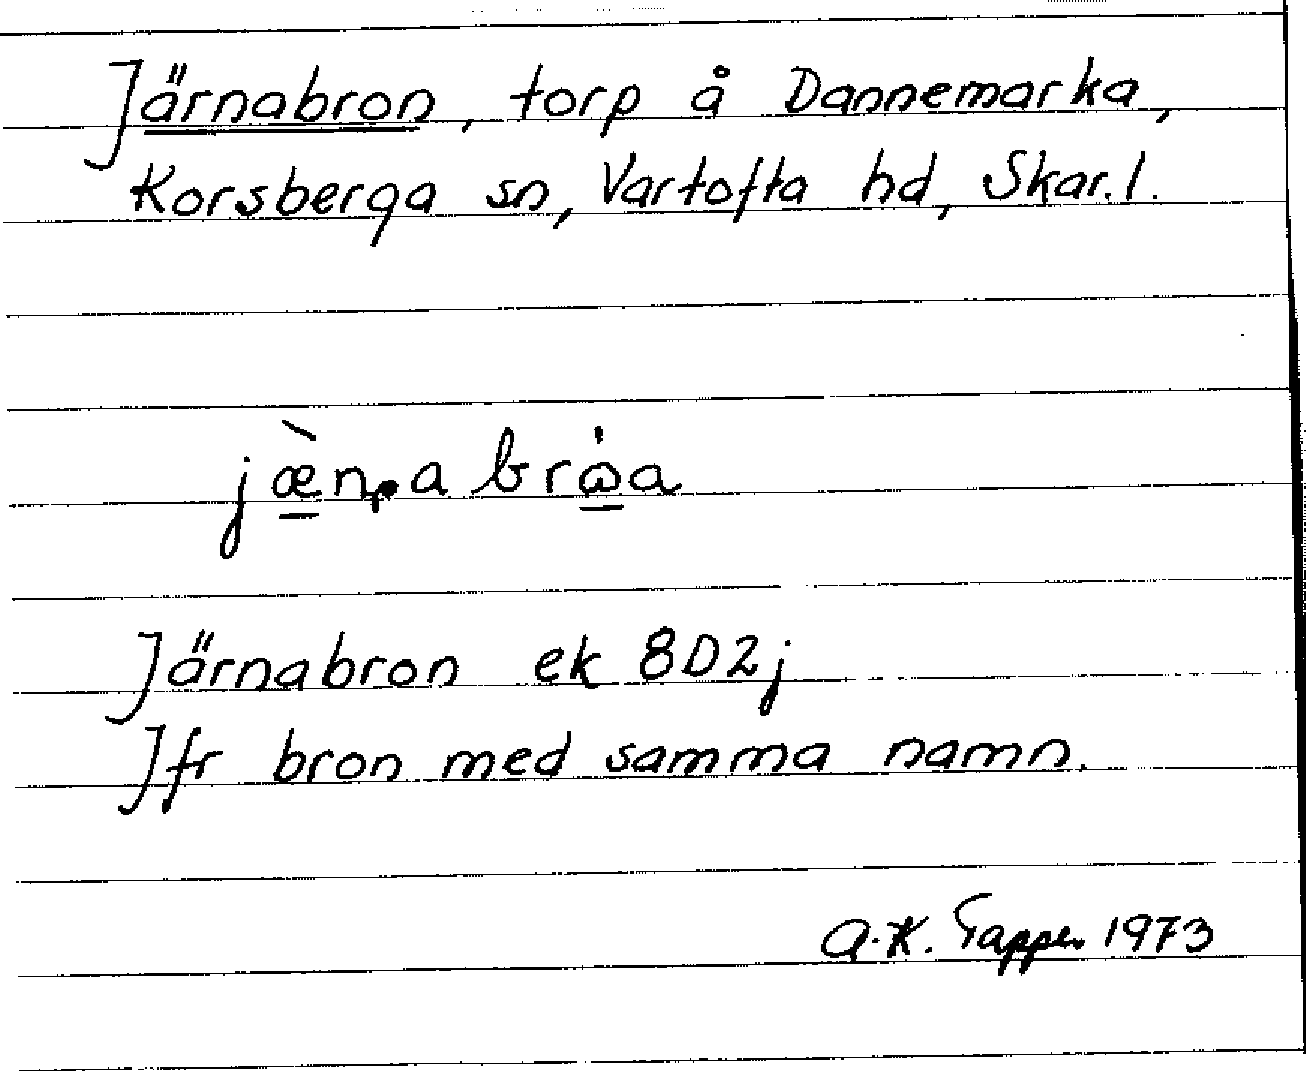 Järnabron, torp å Dannemarka,
Korsberga sn, Vartofta hd, Skar. l.
Järnabron ek 8D2j
Jfr bron med samma namn.
A.K. Tapper 1973